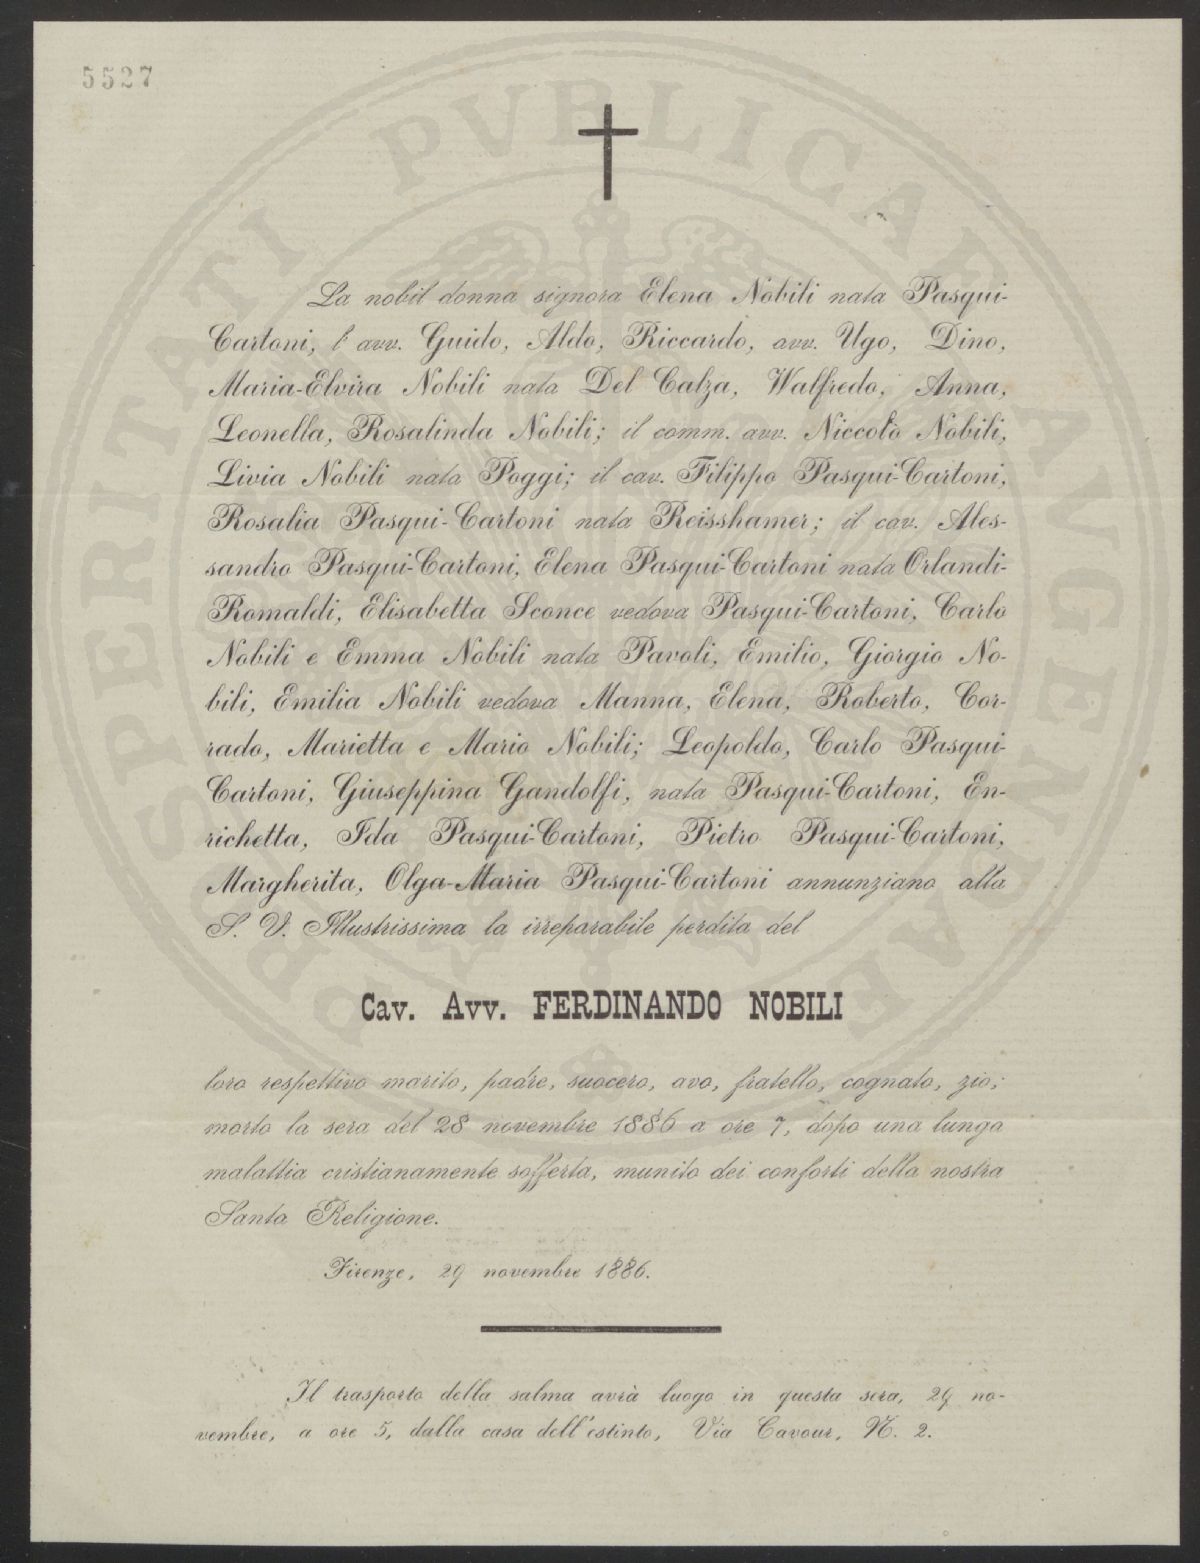 5527
PROSPERITATI PVBLICAE AVGENDAE
La nobil donna signora Elena Nobili nata Pasqui-
Cartoni, l'avv. Guido, Aldo, Riccardo, avv. Ugo, Dino,
Maria-Elvira Nobili nata Del Calza, Walfredo, Anna,
Leonella, Rosalinda Nobili; il comm. avv. Niccolò Nobili,
Livia Nobili nata Poggi; il cav. Filippo Pasqui-Cartoni,
Rosalia Pasqui-Cartoni nata Reisshamer; il cav. Ales-
sandro Pasqui-Cartoni, Elena Pasqui-Cartoni nata Orlandi-
Romaldi, Elisabetta Sconce vedova Pasqui-Cartoni, Carlo
Nobili e Emma Nobili nata Pavoli, Emilio, Giorgio No-
bili, Emilia Nobili vedova Manna, Elena, Roberto, Cor-
rado, Marietta e Mario Nobili; Leopoldo, Carlo Pasqui-
Cartoni, Giuseppina Gandolfi, nata Pasqui-Cartoni, En-
richetta, Ida Pasqui-Cartoni, Pietro Pasqui-Cartoni,
Margherita, Olga-Maria Pasqui-Cartoni annunziano alla
S. V. Illustrissima la irreparabile perdita del
Cav. Avv. FERDINANDO NOBILI
loro respettivo marito, padre, suocero, avo, fratello, cognato, zio;
morto la sera del 28 novembre 1886 a ore 7, dopo una lunga
malattia cristianamente sofferta, munito dei conforti della nostra
Santa Religione.
Firenze, 29 novembre 1886.
Il trasporto della salma avrà luogo in questa sera, 29 no-
vembre, a ore 5, dalla casa dell'estinto, Via Cavour, N. 2.